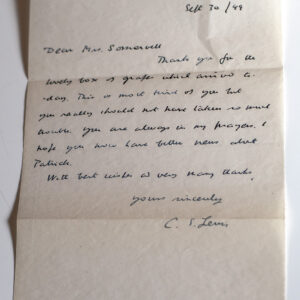 Sept 30 / 49
Dear Mrs. Somervell
Thank you for the
lovely box of grapes which arrived to-
day. This is most kind of you but
you really should not have taken so much
trouble. You are always in my prayers. I
hope you now have better news about
Patrick.
With best wishes and very many thanks,
yours sincerely
C. S. Lewis